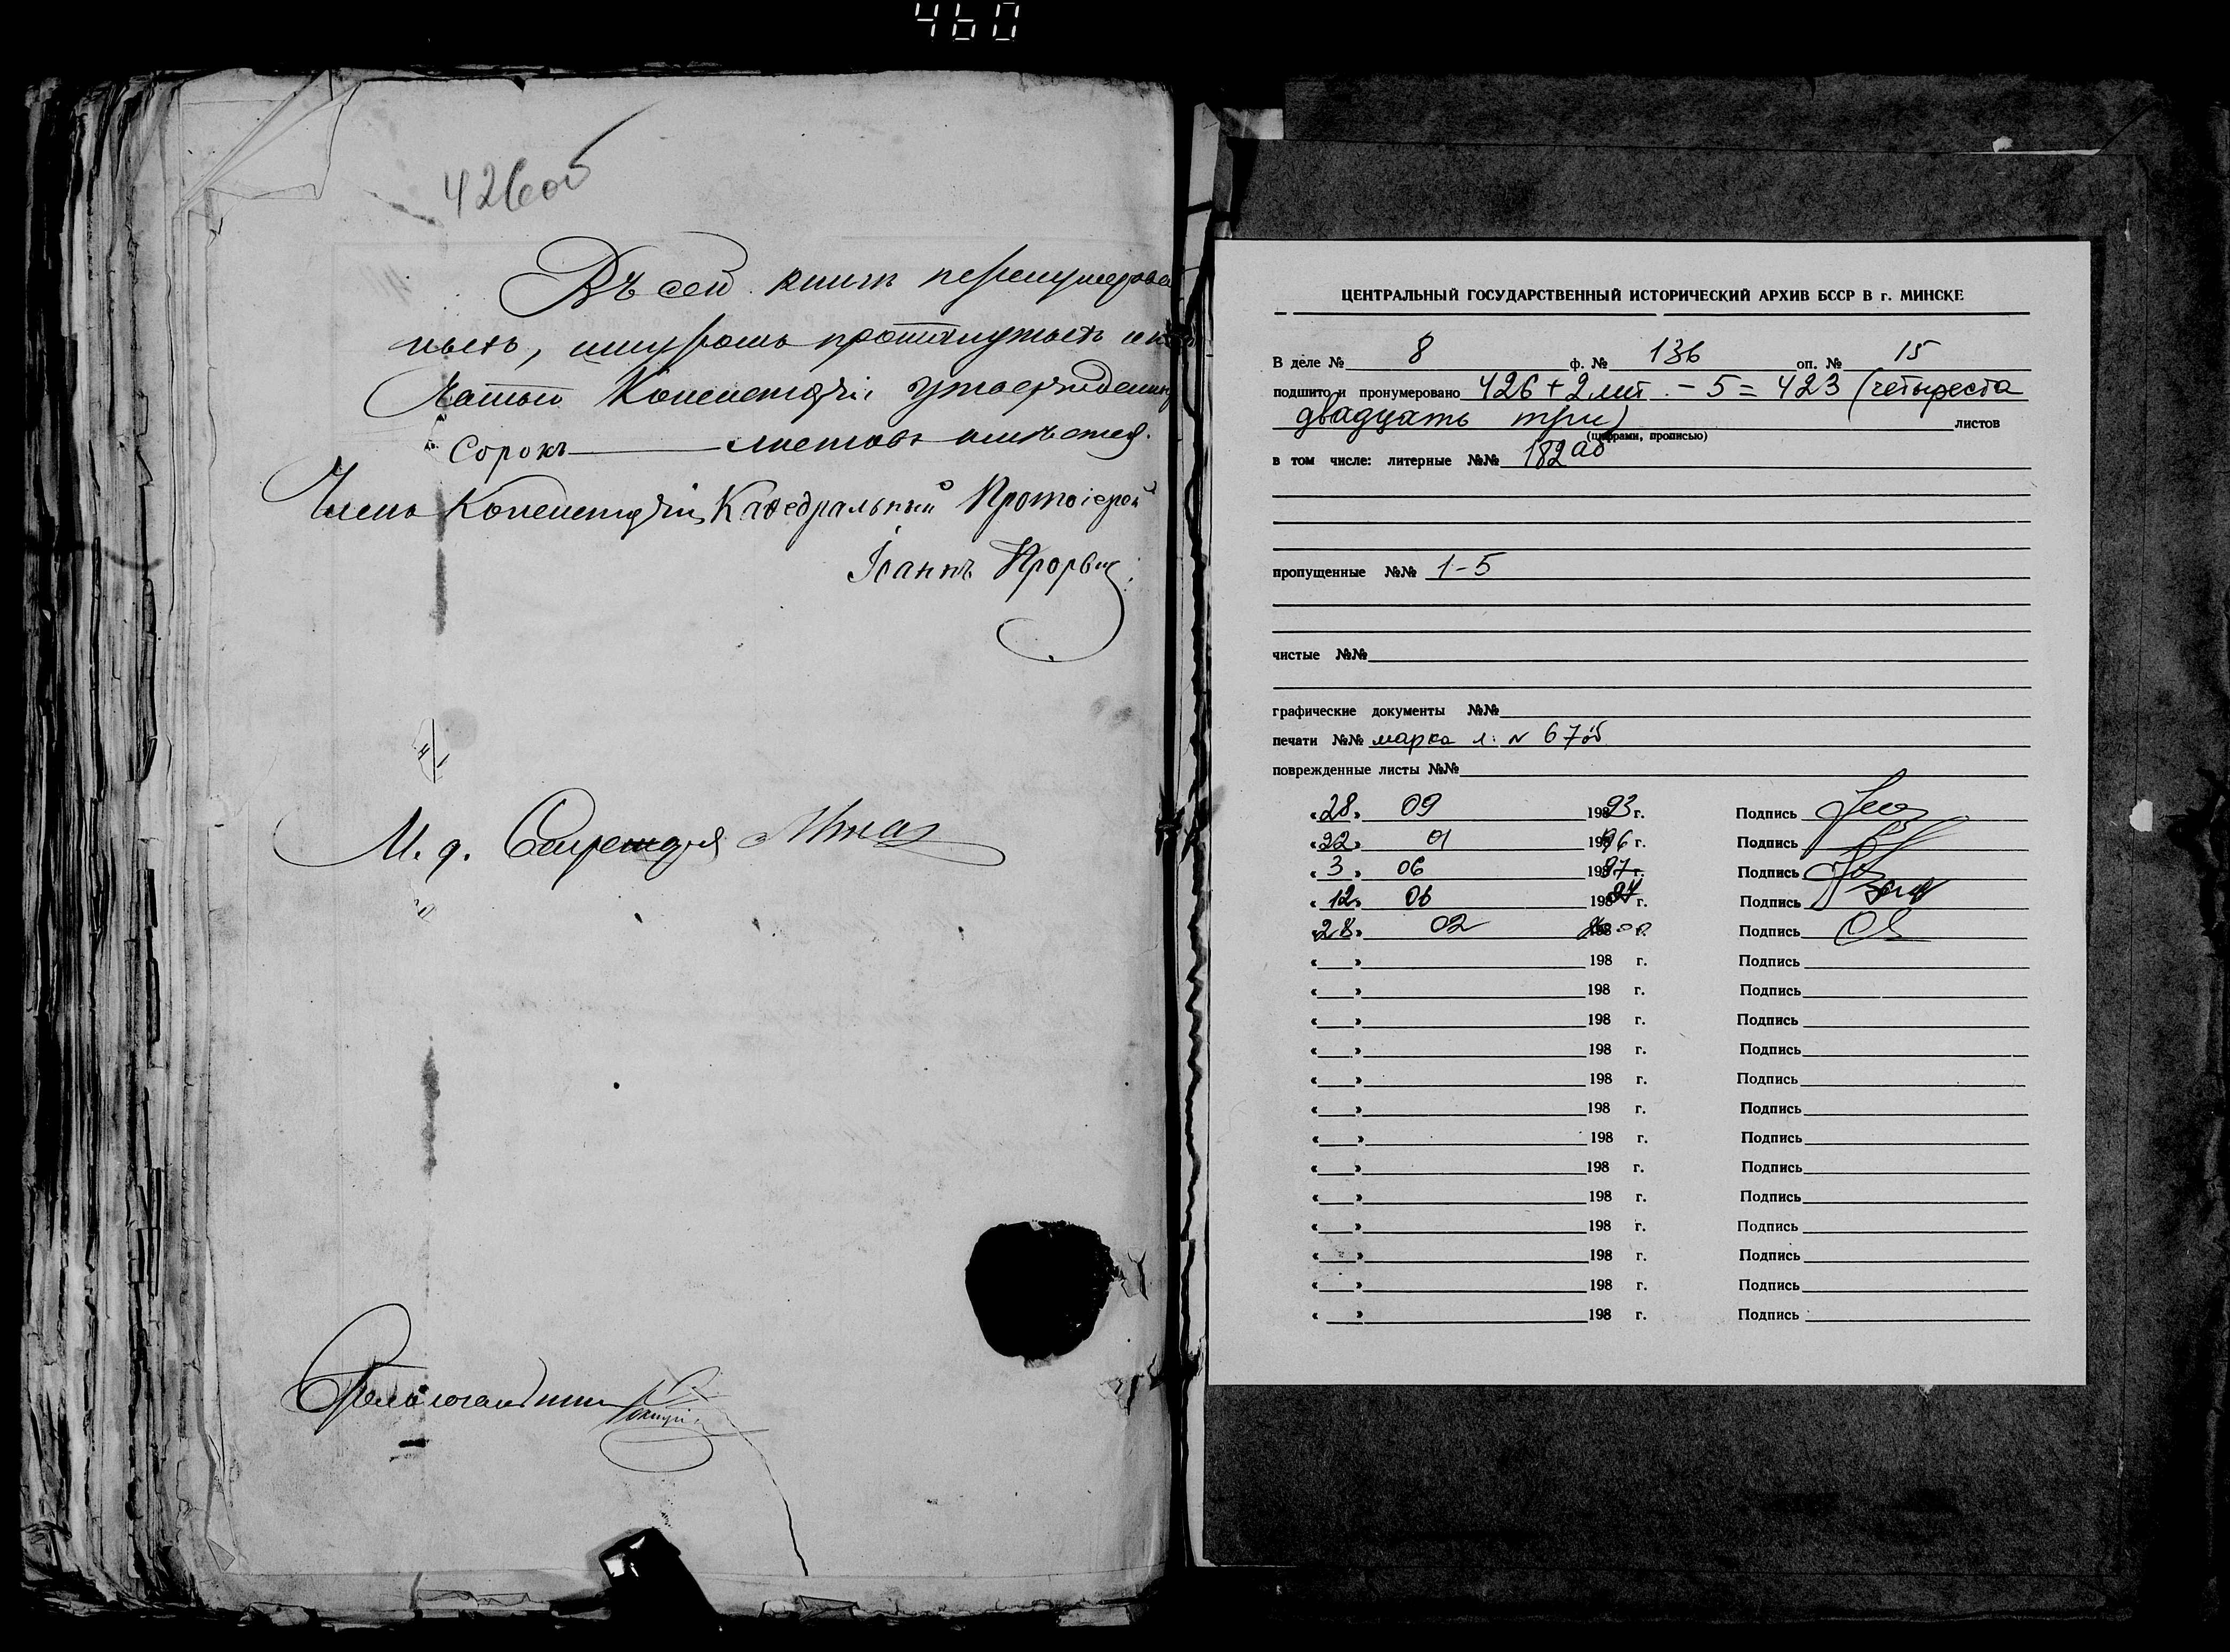 460
426об
Въ сей книгѣ перенумерован
ныхъ, шнуромъ протянутыхъ и пе
чатью Консисторіи утвержденныхъ
Сорокъ листовъ имѣется.
Членъ Консисторіи, Каѳедральный Протоіерей
Іоаннъ
И. д. Секретаря
ЦЕНТРАЛЬНЫЙ ГОСУДАРСТВЕННЫЙ ИСТОРИЧЕСКИЙ АРХИВ БССР В г. МИНСКЕ
В деле № 8 ф. № 136 оп. № 15
подшито и пронумеровано 426 + 2 лит. - 5 = 423 (четыреста
двадцать три) листов
(цифрами, прописью)
в том числе: литерные №№ 182 аб
пропущенные №№ 1-5
чистые №№
графические документы №№
печати №№ марка л. N 67об
поврежденные листы №№
«28» 09 1993 г. Подпись
«22» 01 1996 г. Подпись
«3» 06 1997 г. Подпись
«12» 06 1997 г. Подпись
«28» 02 2000 г. Подпись
« » 198 г. Подпись
« » 198 г. Подпись
« » 198 г. Подпись
« » 198 г. Подпись
« » 198 г. Подпись
« » 198 г. Подпись
« » 198 г. Подпись
« » 198 г. Подпись
« » 198 г. Подпись
« » 198 г. Подпись
« » 198 г. Подпись
« » 198 г. Подпись
« » 198 г. Подпись